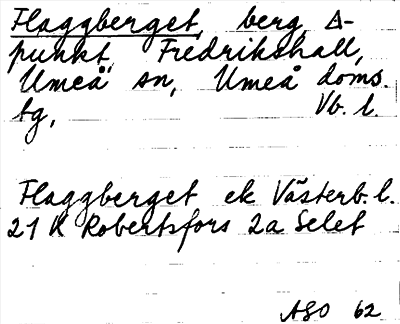 Flaggberget, berg, Δ-
punkt, Fredrikshall,
Umeå sn, Umeå doms.
tg, Vb. l.
Flaggberget ek Västerb. l.
21 K Robertsfors 2a Selet
ASO 62